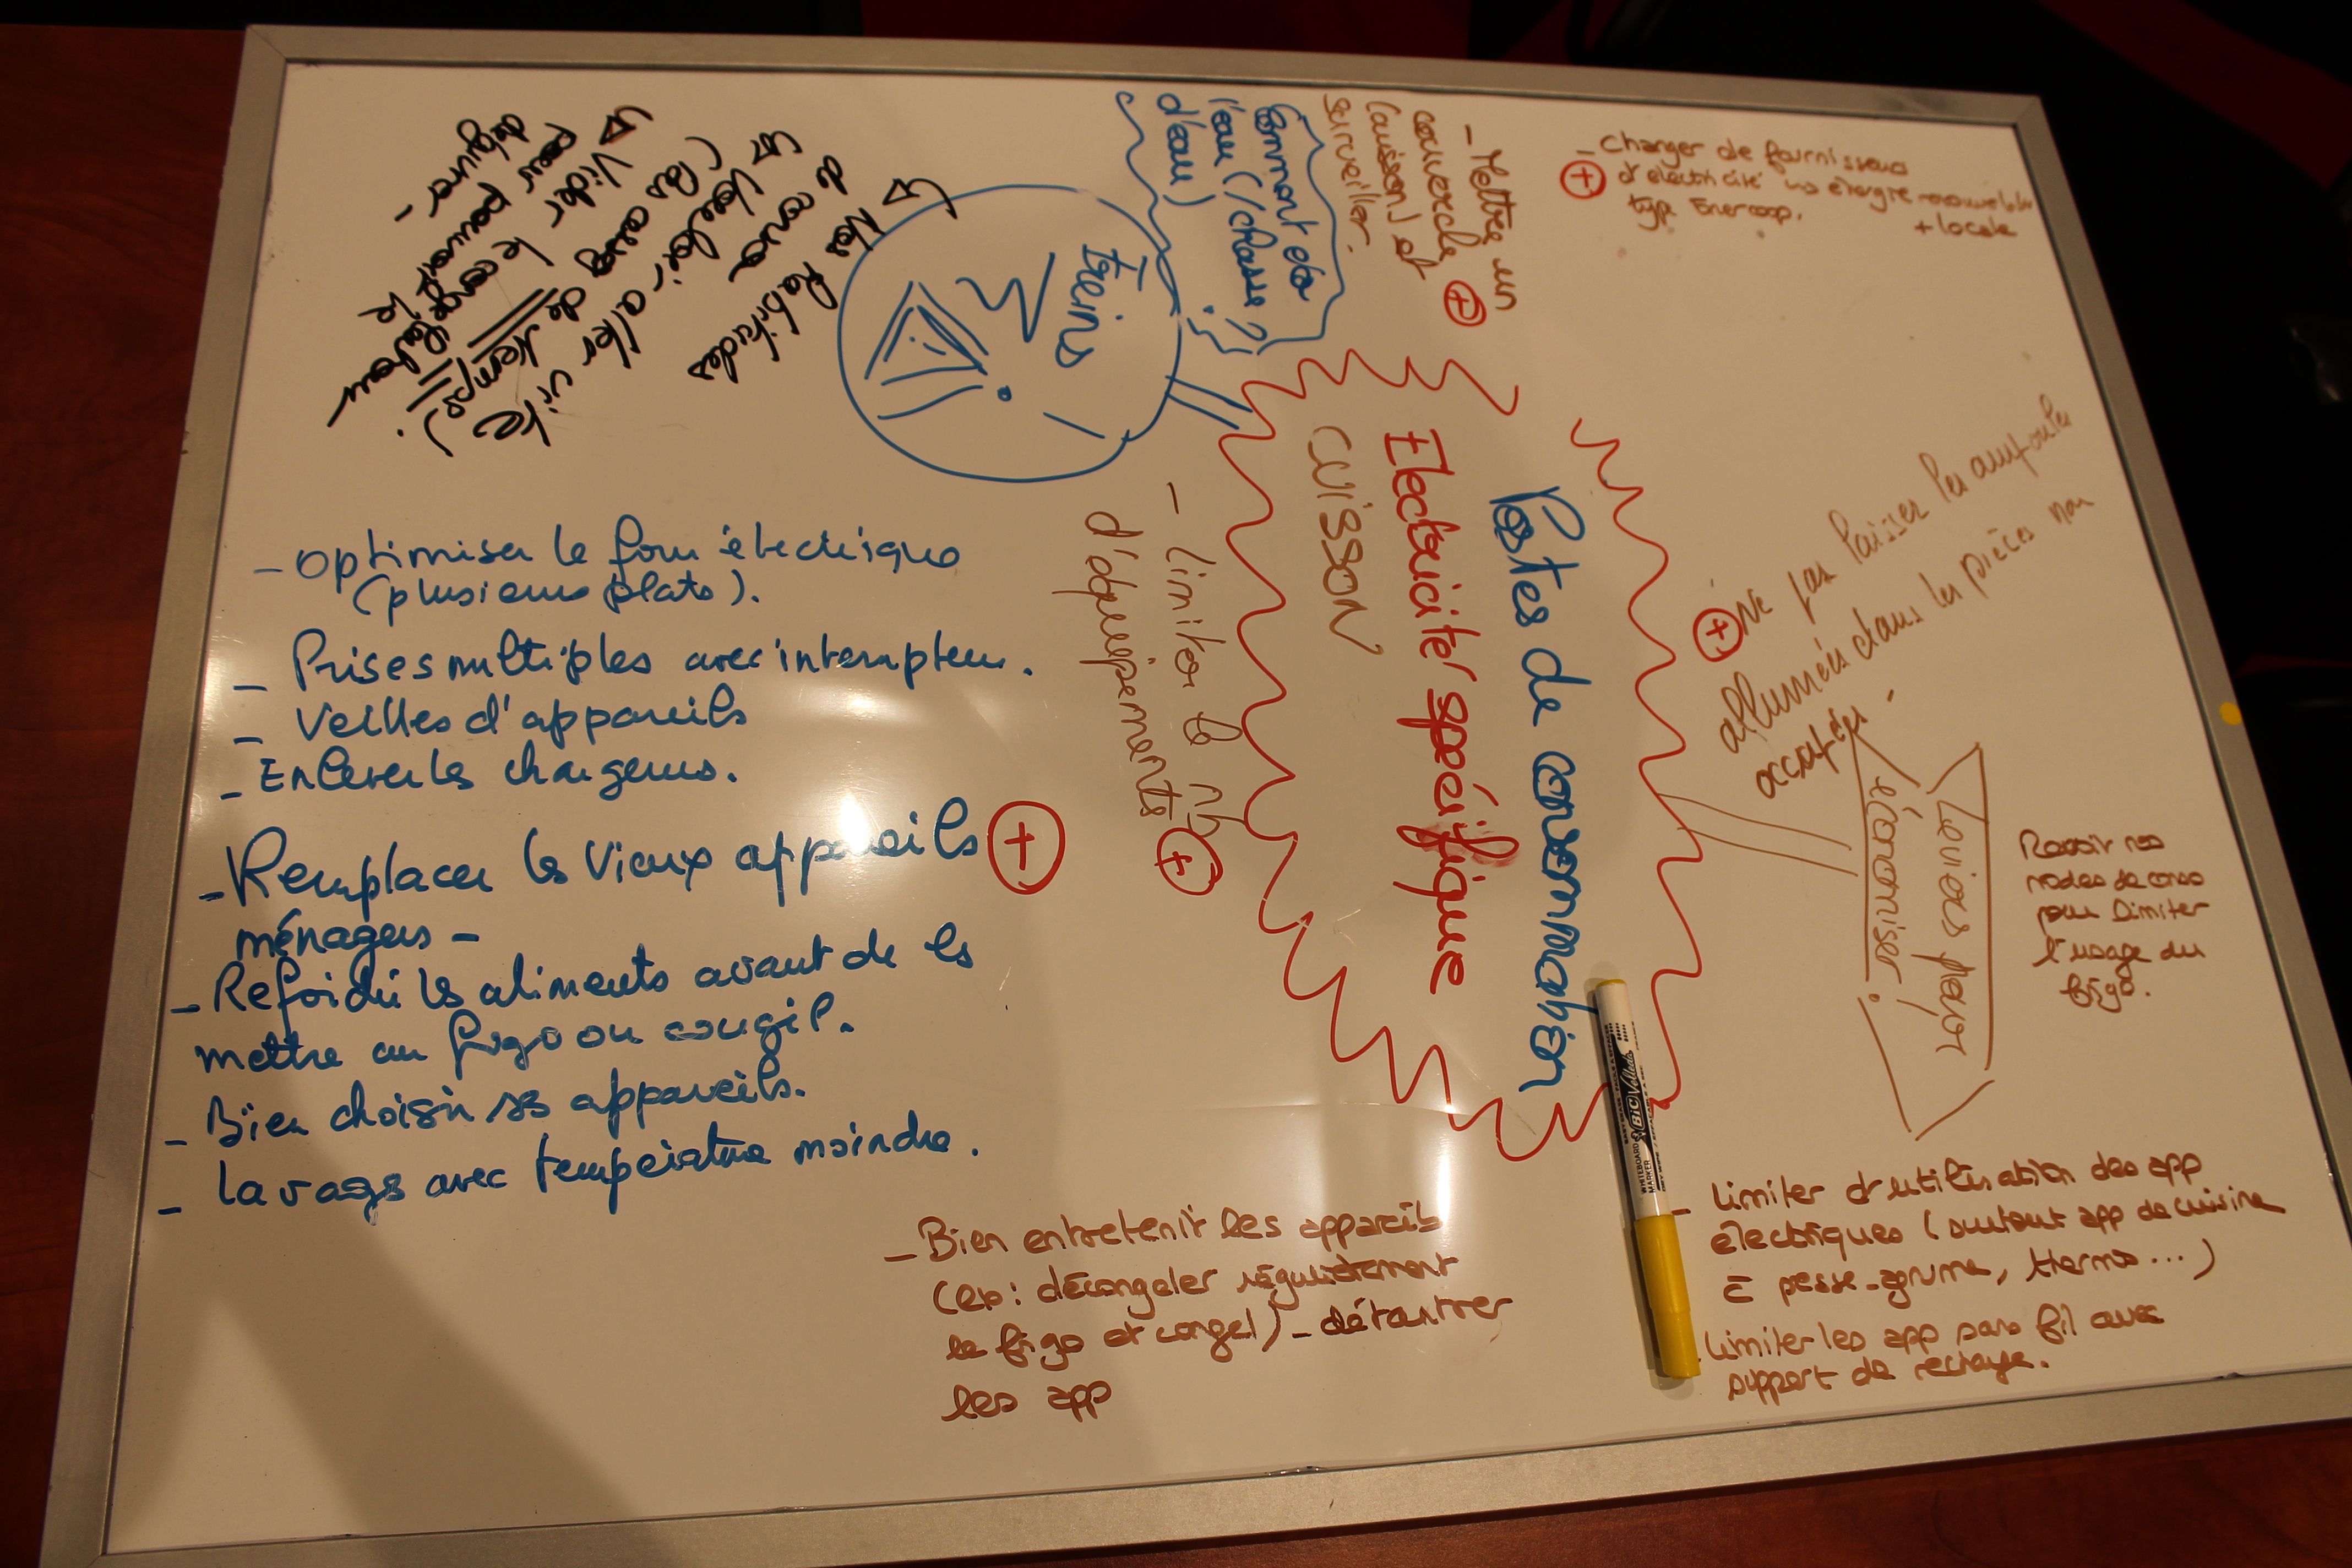 Postes de consommation
Electricité spécifique
CUISSON
- Changer de fournisseur
d'électricité énergie renouvelable
type Enercoop. + locale
+
- Mettre un
couvercle
(cuisson) et
surveiller.
+
Comment éco
l'eau (/chasse
d'eau) ?
Freins
!
→ Nos habitudes
de conso
→ Vouloir aller vite
(pas assez de temps).
→ Vider le congel
pour pouvoir le
dégivrer -
- limiter le nb
d'équipements
+
+ Ne pas laisser les ampoules
allumées dans les pièces non
occupées -
Leviers pour
économiser !
Revoir nos
modes de conso
pour limiter
l'usage du
frigo.
- Optimiser le four électrique
(plusieurs plats).
- Prises multiples avec interrupteur.
- Veilles d'appareils
- Enlever les chargeurs.
- Remplacer les vieux appareils +
ménagers -
- Refroidir les aliments avant de les
mettre au frigo ou congél.
- Bien choisir ses appareils.
- lavages avec température moindre.
- Bien entretenir les appareils
(ex : décongeler régulièrement
le frigo et congel) - détartrer
les app
- limiter d'utilisation des app
électriques (surtout app de cuisine
= presse-agrume, thermo...)
limiter les app sans fil avec
support de recharge.
WHITEBOARD MARKER BIC Velleda